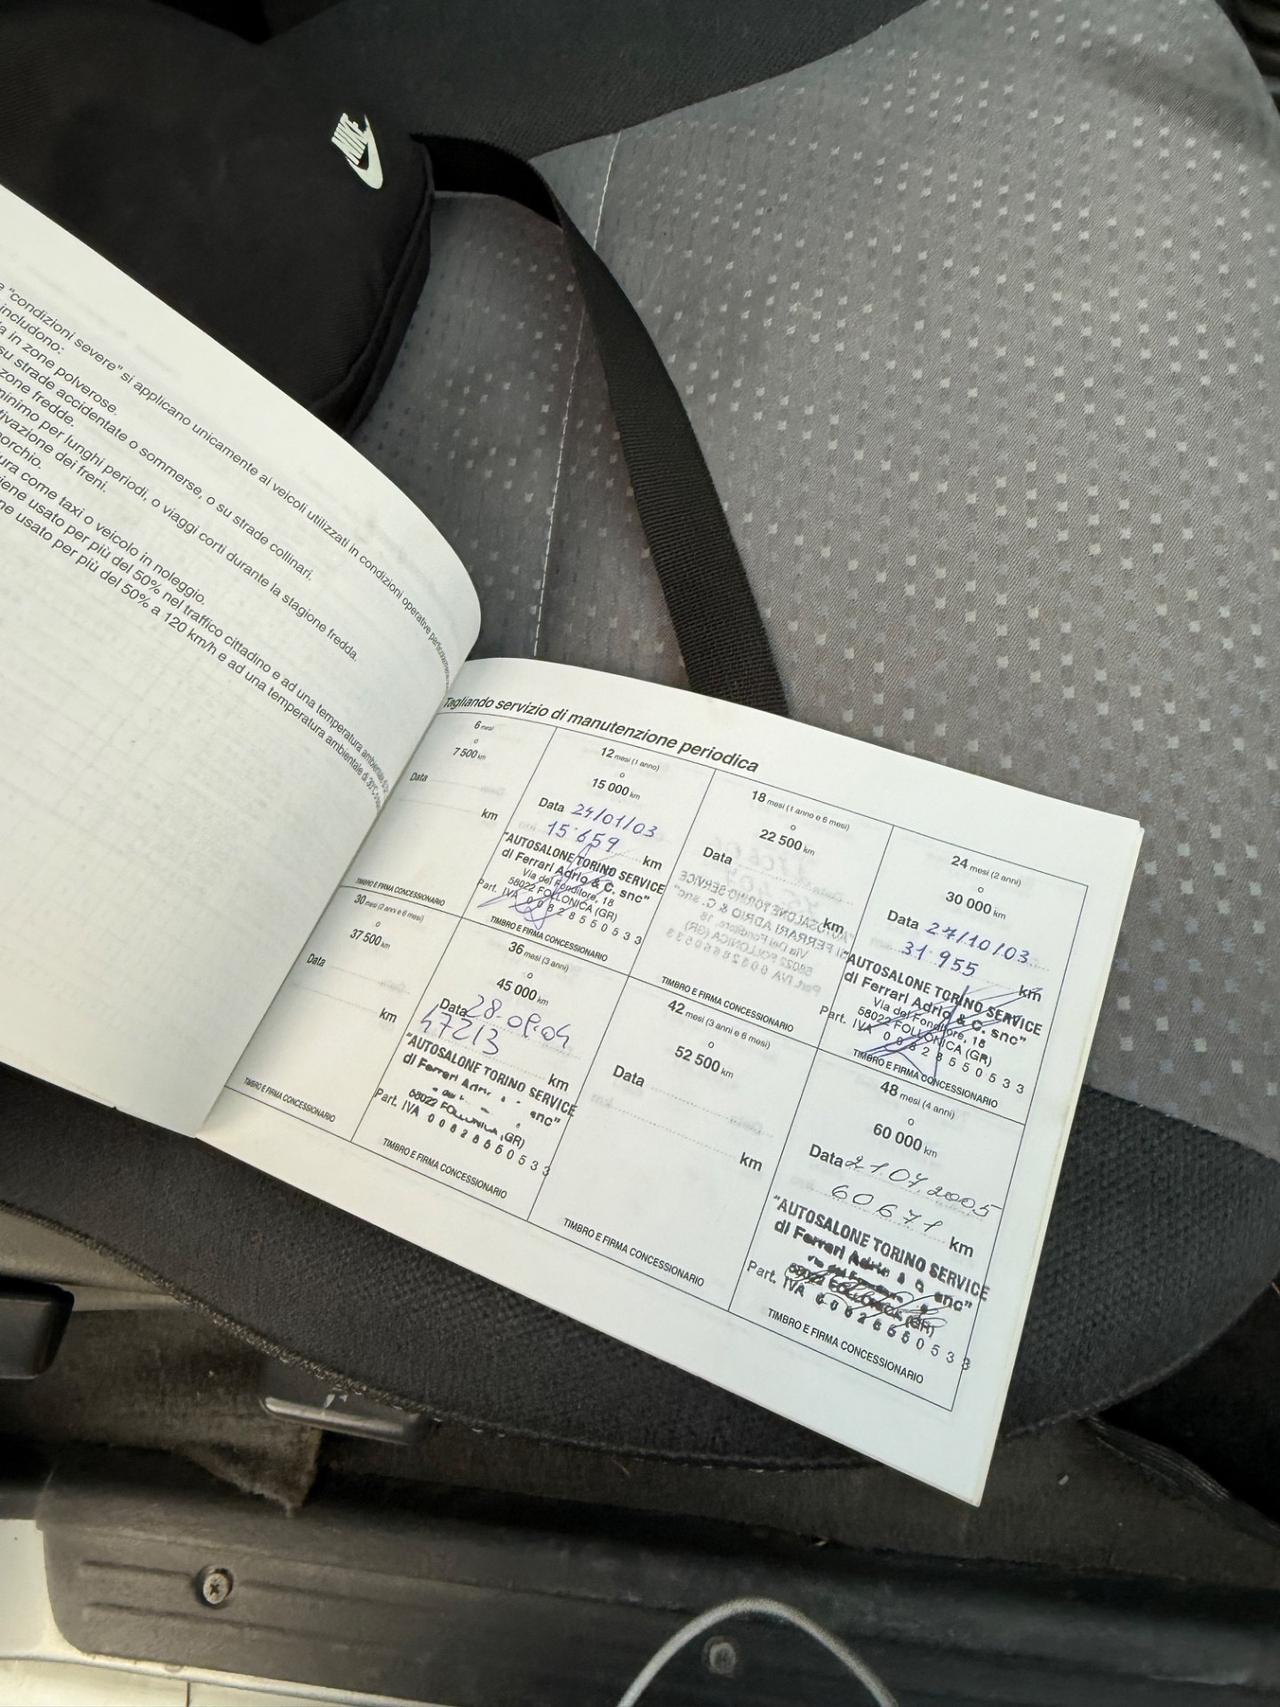 NIKE
"condizioni severe" si applicano unicamente ai veicoli utilizzati in condizioni operative
includono:
in zone polverose.
su strade accidentate o sommerse, o su strade collinari.
zone fredde.
minimo per lunghi periodi, o viaggi corti durante la stagione fredda.
dei freni.
come taxi o veicolo in noleggio.
usato per più del 50% nel traffico cittadino e ad una temperatura ambientale
usato per più del 50% a 120 km/h e ad una temperatura ambientale di 30°C
Tagliando servizio di manutenzione periodica
6 mesi
o
7 500 km
Data
km
TIMBRO E FIRMA CONCESSIONARIO
12 mesi (1 anno)
o
15 000 km
Data 24/01/03
15.659 km
"AUTOSALONE TORINO SERVICE
di Ferrari Adrio & C. snc"
Via del Fonditore, 18
58022 FOLLONICA (GR)
Part. IVA 00828550533
TIMBRO E FIRMA CONCESSIONARIO
18 mesi (1 anno e 6 mesi)
o
22 500 km
Data
km
TIMBRO E FIRMA CONCESSIONARIO
24 mesi (2 anni)
o
30 000 km
Data 27/10/03
31.955
km
"AUTOSALONE TORINO SERVICE
di Ferrari Adrio & C. snc"
Via del Fonditore, 18
58022 FOLLONICA (GR)
Part. IVA 00828550533
TIMBRO E FIRMA CONCESSIONARIO
30 mesi (2 anni e 6 mesi)
o
37 500 km
Data
km
TIMBRO E FIRMA CONCESSIONARIO
36 mesi (3 anni)
o
45 000 km
Data 28.09.04
47213
km
"AUTOSALONE TORINO SERVICE
di Ferrari snc"
58022 FOLLONICA (GR)
Part. IVA 00828550533
TIMBRO E FIRMA CONCESSIONARIO
42 mesi (3 anni e 6 mesi)
o
52 500 km
Data
km
TIMBRO E FIRMA CONCESSIONARIO
48 mesi (4 anni)
o
60 000 km
Data 21.07.2005
60671 km
"AUTOSALONE TORINO SERVICE
di Ferrari Adrio & C snc"
58022 FOLLONICA (GR)
Part. IVA 00828550533
TIMBRO E FIRMA CONCESSIONARIO